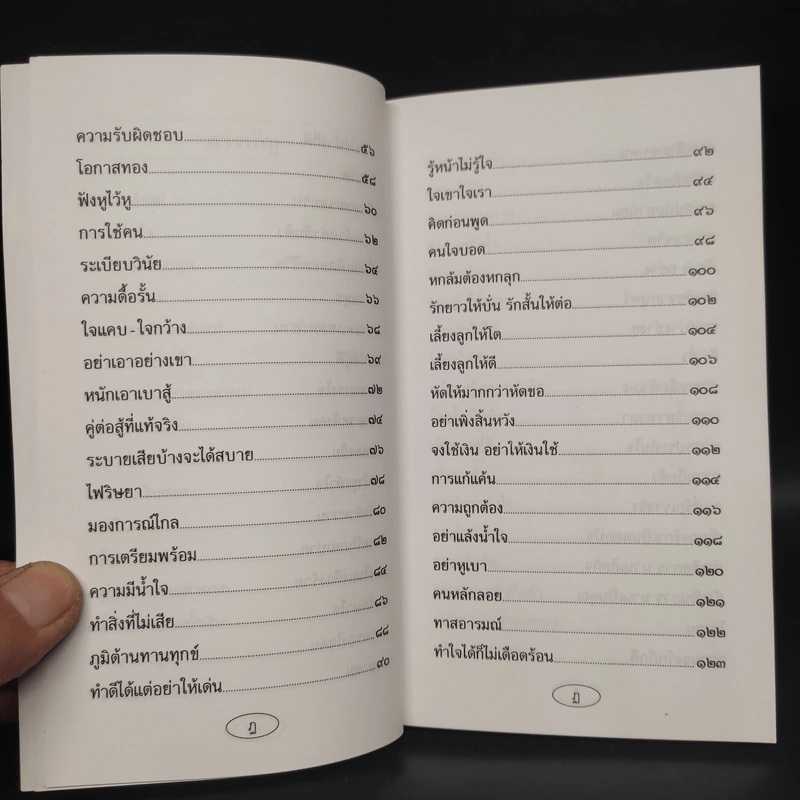 ความรับผิดชอบ ๕๖
โอกาสทอง ๕๘
ฟังหูไว้หู ๖๐
การใช้คน ๖๒
ระเบียบวินัย ๖๔
ความดื้อรั้น ๖๖
ใจแคบ - ใจกว้าง ๖๘
อย่าเอาอย่างเขา ๖๙
หนักเอาเบาสู้ ๗๒
คู่ต่อสู้ที่แท้จริง ๗๔
ระบายเสียบ้างจะได้สบาย ๗๖
ไฟริษยา ๗๘
มองการณ์ไกล ๘๐
การเตรียมพร้อม ๘๒
ความมีน้ำใจ ๘๔
ทำสิ่งที่ไม่เสีย ๘๖
ภูมิต้านทานทุกข์ ๘๘
ทำดีได้แต่อย่าให้เด่น ๙๐
ฎ
รู้หน้าไม่รู้ใจ ๙๒
ใจเขาใจเรา ๙๔
คิดก่อนพูด ๙๖
คนใจบอด ๙๘
หกล้มต้องหกลุก ๑๐๐
รักยาวให้บั่น รักสั้นให้ต่อ ๑๐๒
เลี้ยงลูกให้โต ๑๐๔
เลี้ยงลูกให้ดี ๑๐๖
หัดให้มากกว่าหัดขอ ๑๐๘
อย่าเพิ่งสิ้นหวัง ๑๑๐
จงใช้เงิน อย่าให้เงินใช้ ๑๑๒
การแก้แค้น ๑๑๔
ความถูกต้อง ๑๑๖
อย่าแล้งน้ำใจ ๑๑๘
อย่าหูเบา ๑๒๐
คนหลักลอย ๑๒๑
ทาสอารมณ์ ๑๒๒
ทำใจได้ก็ไม่เดือดร้อน ๑๒๓
ฏ